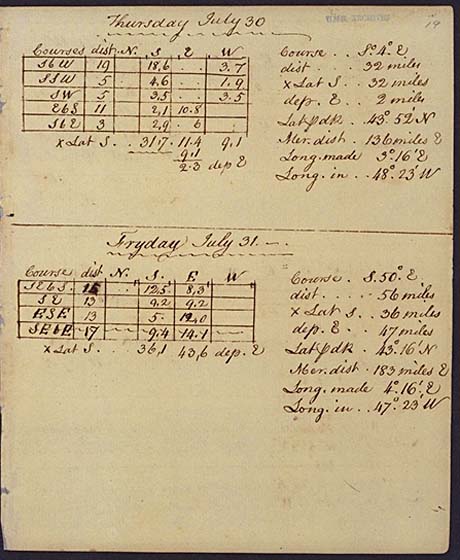 Thursday July 30
19
Courses dist. N. S. E W
SbW 19 18,6 3.7
SSW 5 4,6 1.9
SW 5 3,5 3.5
EbS 11 2,1 10.8
SbE 3 2,9 6
x Lat S. 31.7 11.4 9,1
9,1
2.3 dep E
Course .. S.° 4.° E
dist .. 32 miles
x Lat S .. 32 miles
dep. E .. 2 miles
Lat p dk . 43° 52 N
Mer. dist . 136 miles E
Long. made 3° 16' E
Long. in .. 48° 23' W
Fryday July 31.
Course dist N. S. E W
SEbS. 15 12,5 8,3
SE 13 9,2 9.2
ESE 13 5. 12,0
SEbE 17 9,4 14.1
x Lat S .. 36,1 43,6 dep. E
Course . S. 50° E.
dist .. 56 miles
x Lat S .. 36 miles
dep. E .. 47 miles
Lat p dk . 43° 16' N
Mer. dist 183 miles E
Long. made 4° 16', E
Long. in .. 47° 23' W